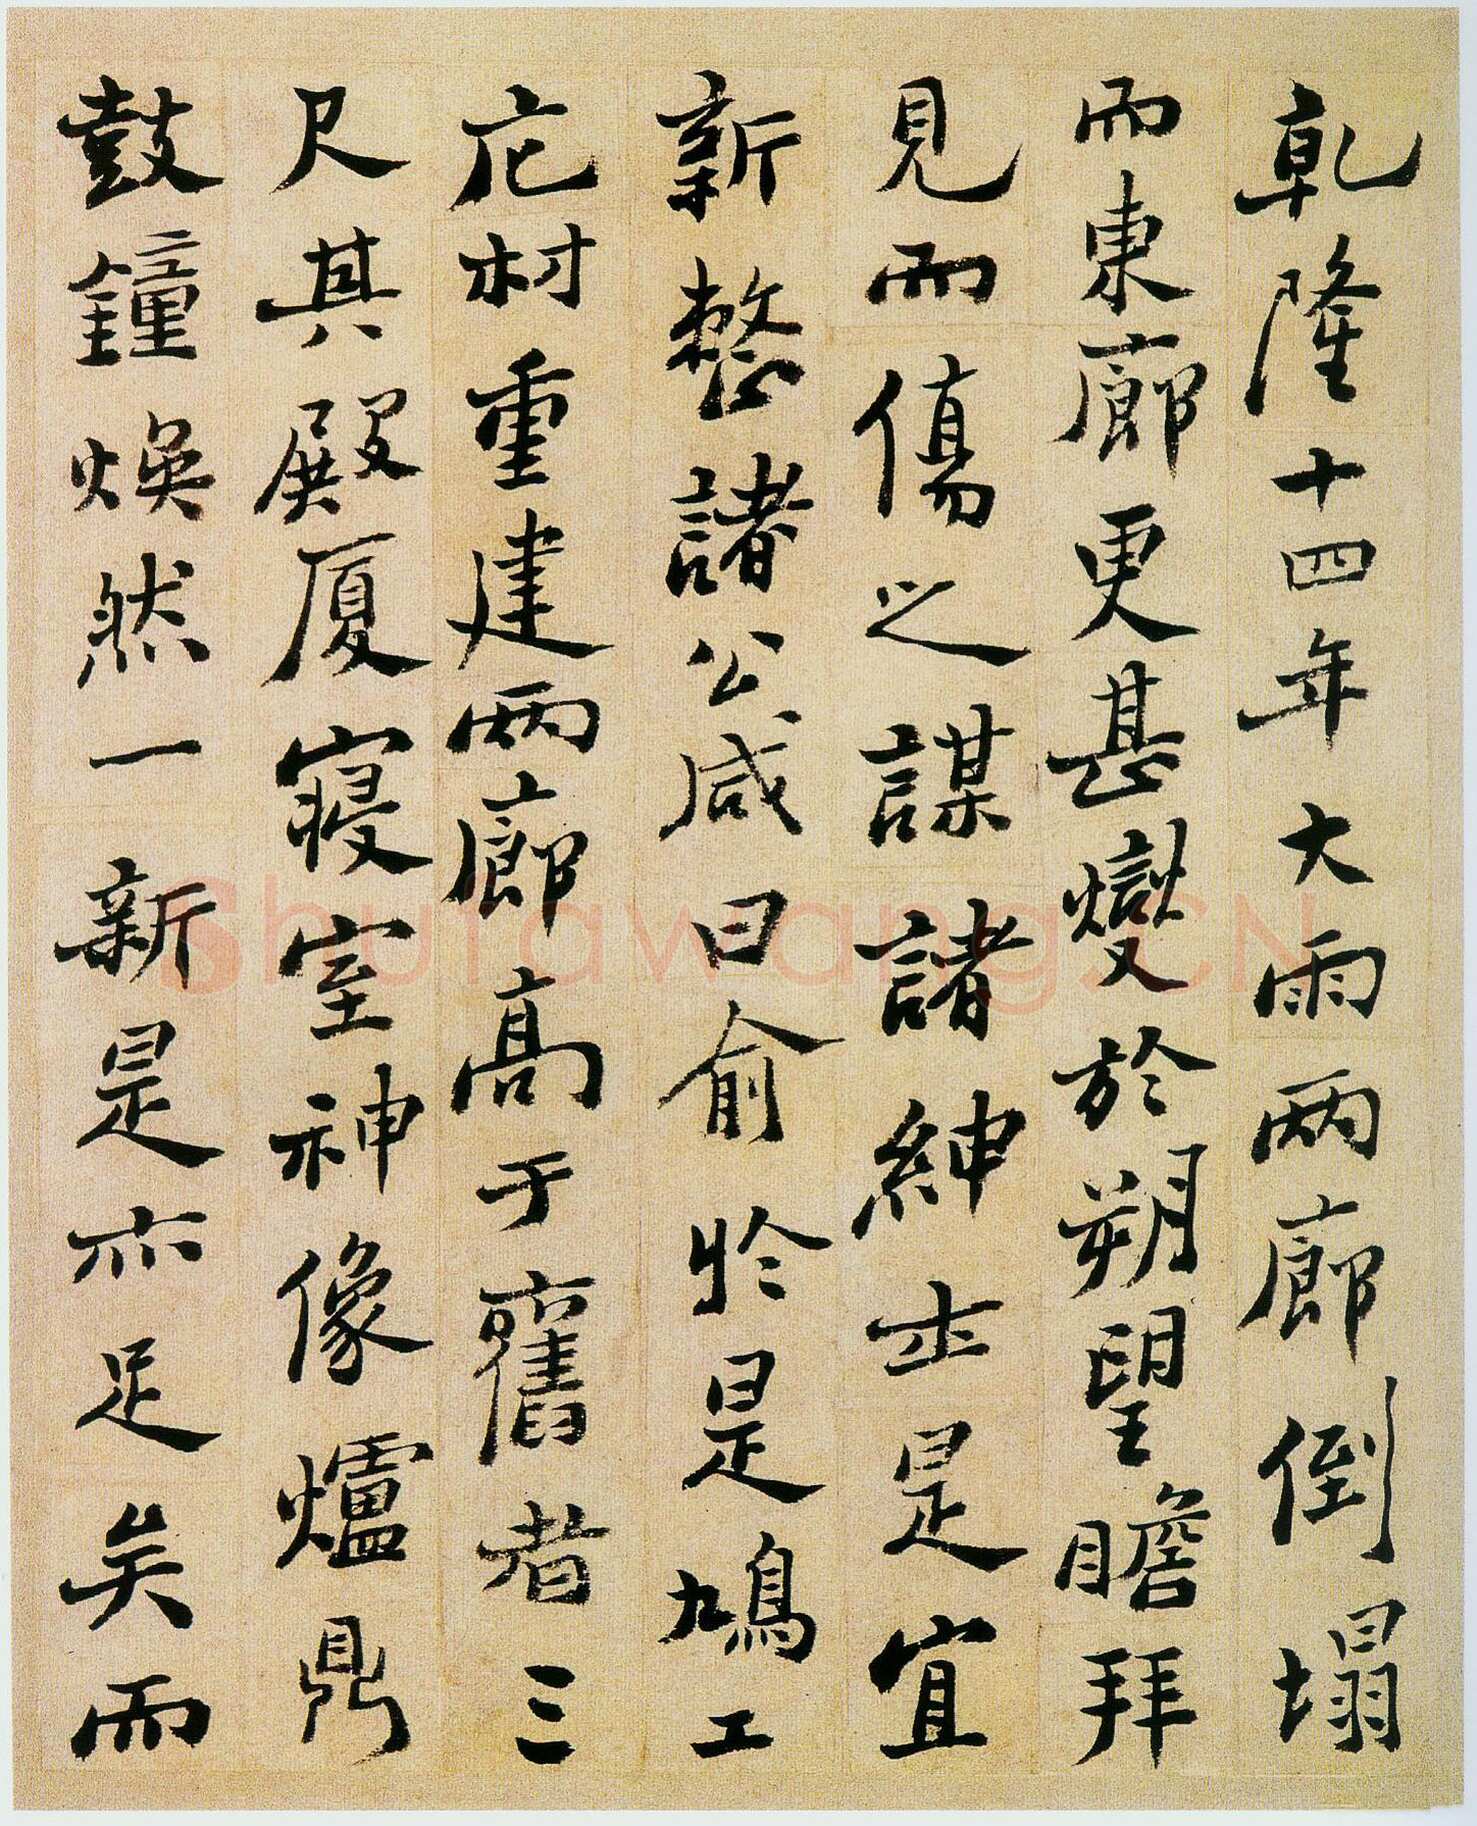 乾隆十四年大雨兩廊倒塌
而東廊更甚燮於朔望瞻拜
見而傷之謀諸紳士是宜
新整諸公咸曰俞於是鳩工
庀材重建兩廊高于舊者三
尺其殿厦寢室神像爐鼎
鼓鐘煥然一新是亦足矣而
Shufawang.CN